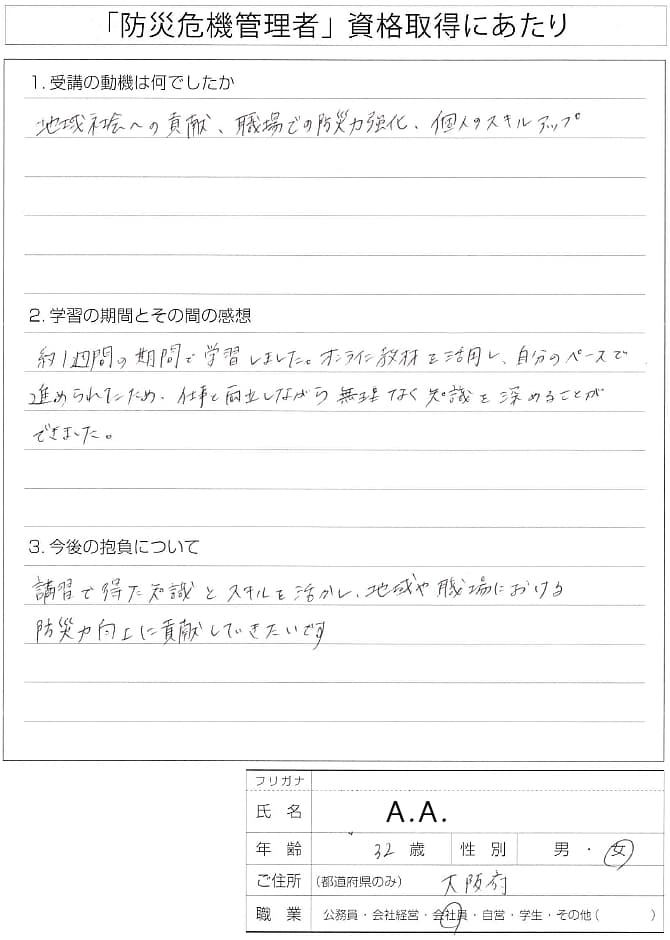 「防災危機管理者」資格取得にあたり
1. 受講の動機は何でしたか
地域社会への貢献、職場での防災力強化、個人のスキルアップ
2. 学習の期間とその間の感想
約1週間の期間で学習しました。オンライン教材を活用し、自分のペースで
進められたため、仕事と両立しながら無理なく知識を深めることが
できました。
3. 今後の抱負について
講習で得た知識とスキルを活かし、地域や職場における
防災力向上に貢献していきたいです
フリガナ
氏 名 A.A.
年 齢 32 歳 性 別 男 ・ 女
ご住所 (都道府県のみ) 大阪府
職 業 公務員・会社経営・会社員・自営・学生・その他( )